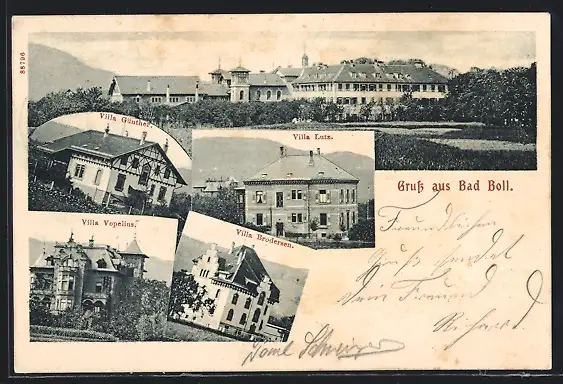 88796
Villa Günther.
Villa Lutz.
Gruß aus Bad Boll.
Villa Vopelius.
Villa Brodersen.
Freundlichen
Gruß sendet
Dein Freund
Richard